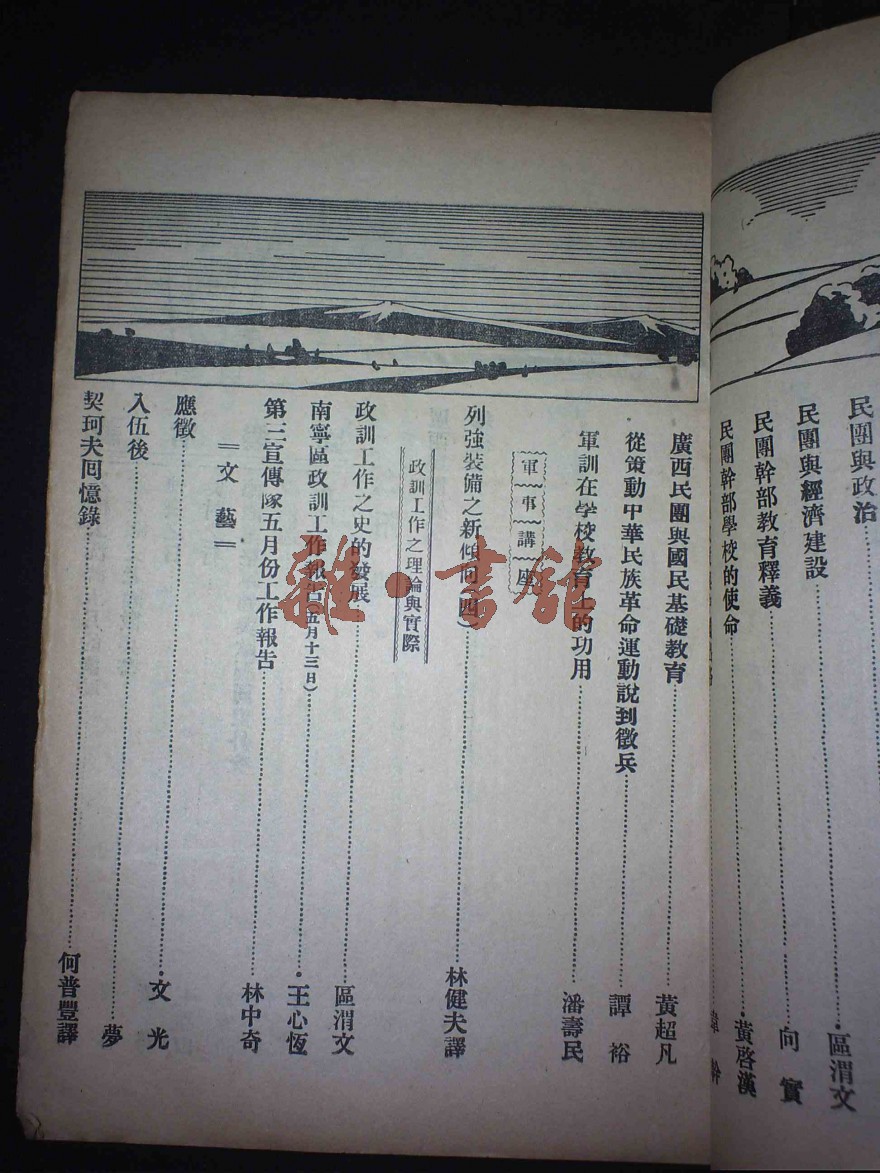 民團與政治……區渭文
民團與經濟建設……向實
民團幹部教育釋義……黃啓漢
民團幹部學校的使命……韋幹
廣西民團與國民基礎教育……黃超凡
從策動中華民族革命運動說到徵兵……譚裕
軍訓在学校教育上的功用……潘壽民
軍事講座
列強裝備之新傾向(四)……林健夫譯
政訓工作之理論與實際
政訓工作之史的發展……區渭文
南寧區政訓工作報告(五月十三日)……王心恆
第三宣傳隊五月份工作報告……林中奇
＝文藝＝
應徵……文光
入伍後……夢
契珂夫囘憶錄……何普豐譯
雜·書館